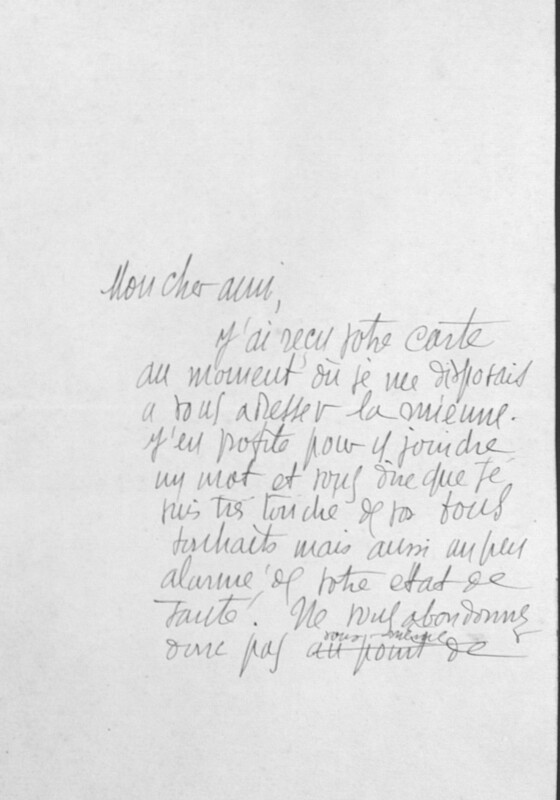 Mon cher ami,
J'ai reçu votre carte
au moment où je me disposais
a vous adresser la mienne.
J'en profite pour y joindre
un mot et vous dire que je
suis très touché de vos bons
souhaits mais aussi un peu
alarmé de votre etat de
santé. Ne vous abandonnez
vous-même
donc pas au point de